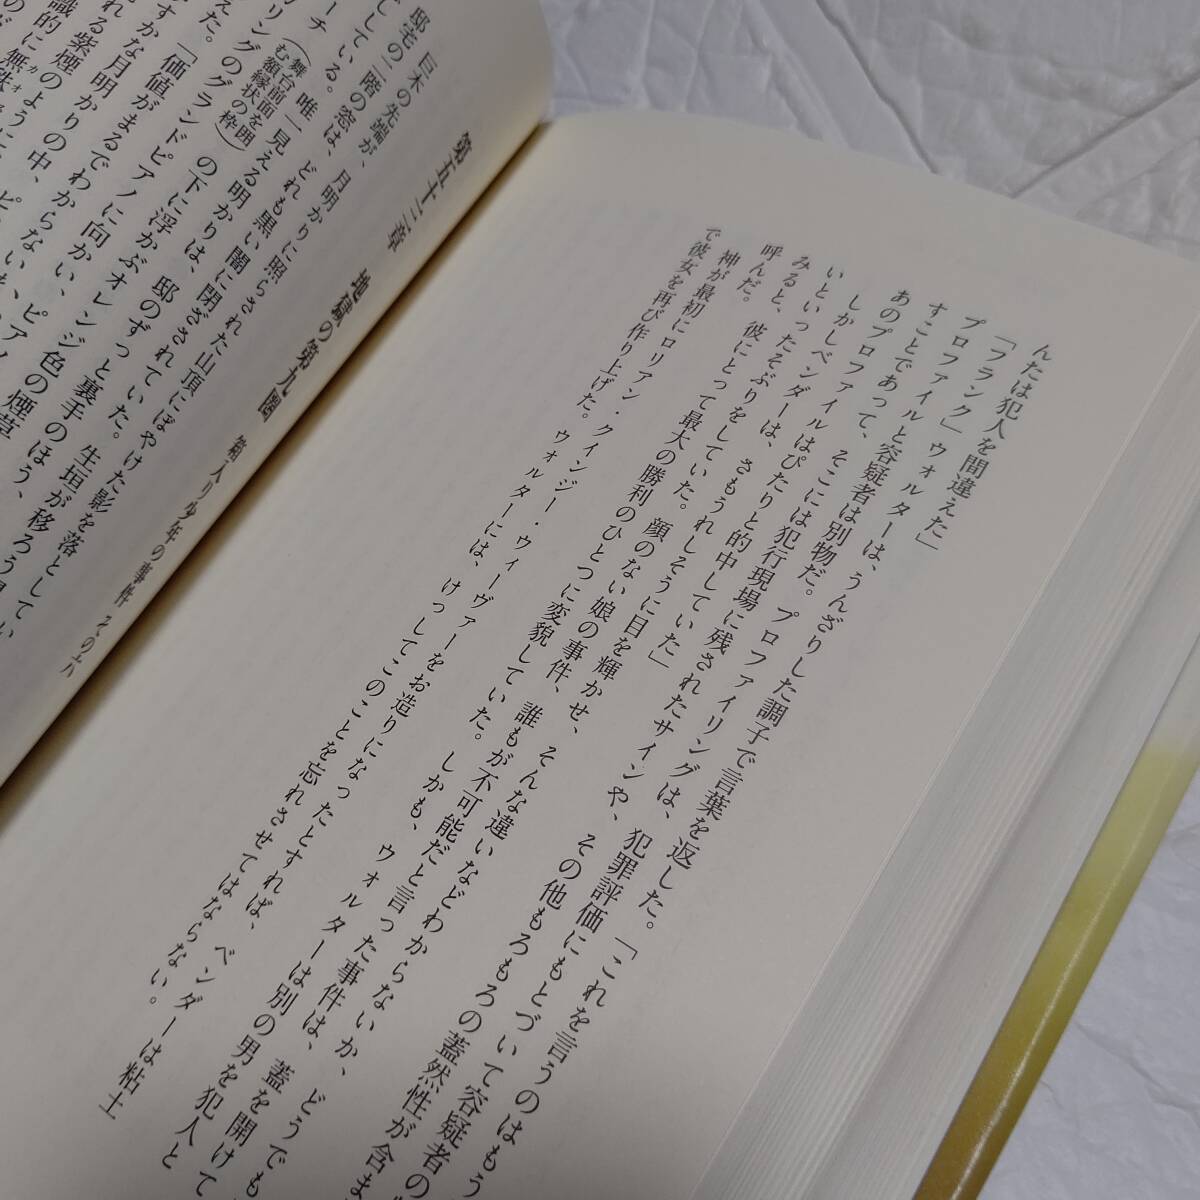 んたは犯人を間違えた」
「フランク」ウォルターは、うんざりした調子で言葉を返した。「これを言うのはもう
プロファイルと容疑者は別物だ。プロファイリングは、犯罪評価にもとづいて容疑者の
すことであって、そこには犯行現場に残されたサインや、その他もろもろの蓋然性が含ま
あのプロファイルはぴたりと的中していた」
しかしベンダーは、さもうれしそうに目を輝かせ、そんな違いなどわからないか、どうでも
いといったそぶりをしていた。顔のない娘の事件、誰もが不可能だと言った事件は、蓋を開けて
みると、彼にとって最大の勝利のひとつに変貌していた。しかも、ウォルターは別の男を犯人と
呼んだ。
神が最初にロリアン・クインジー・ウィーヴァーをお造りになったとすれば、ベンダーは粘土
で彼女を再び作り上げた。ウォルターには、けっしてこのことを忘れさせてはならない。
第五十三章 地獄の第九圏 箱入り少年の事件 その六
巨木の先端が、月明かりに照らされた山頂にぼやけた影を落としてい
邸宅の二階の窓は、どれも黒い闇に閉ざされていた。生垣が移ろう
してしている。唯一見える明かりは、邸のずっと裏手のほう、
ーチ(舞台前面を囲む額縁状の枠)の下に浮かぶオレンジ色の煙草
リングのグランドピアノに向かい、
えた。「価値がまるでわからないも、ピアノ
すかな月明かりの中、ピ
れる紫煙のように
識的に無